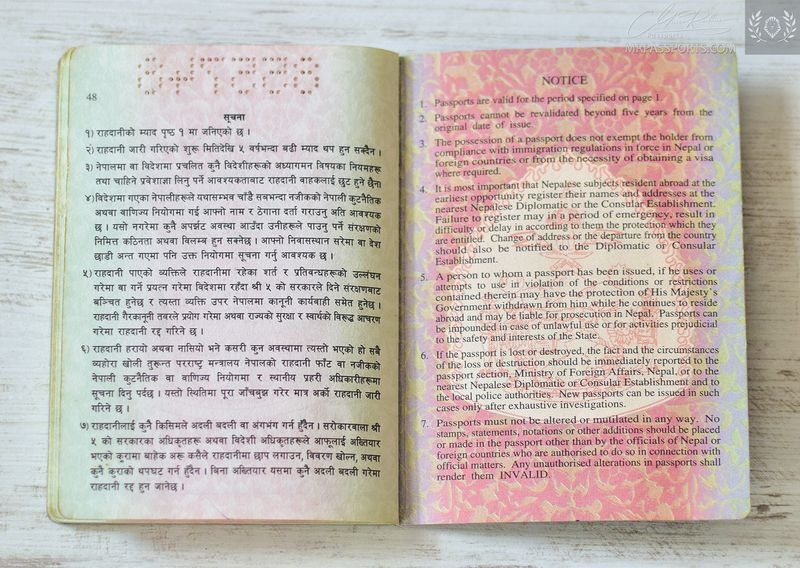 MRPASSPORTS.COM
48
सूचना
१) राहदानीको म्याद पृष्ठ १ मा जनिएको छ ।
२) राहदानी जारी गरिएको शुरू मितिदेखि ५ वर्षभन्दा बढी म्याद थप हुन सक्दैन ।
३) नेपालमा वा विदेशमा प्रचलित कुनै विदेशीहरूको अध्यागमन विषयका नियमहरू
तथा चाहिने प्रवेशाज्ञा लिनु पर्ने आवश्यकताबाट राहदानी वाहकलाई छुट हुने छैन।
४) विदेशमा गएका नेपालीहरूले यथासम्भव चाँडै सबभन्दा नजीकको नेपाली कुटनैतिक
अथवा वाणिज्य नियोगमा गई आफ्नो नाम र ठेगाना दर्ता गराउनु अति आवश्यक
छ । यसो नगरेमा कुनै अपर्झट अवस्था आउँदा उनीहरूले पाउनु पर्ने संरक्षणको
निमित्त कठिनता अथवा बिलम्ब हुन सक्नेछ । आफ्नो निवासस्थान सरेमा वा देश
छाडी अन्त गएमा पनि उक्त नियोगमा सूचना गर्नु आवश्यक छ ।
५) राहदानी पाएको व्यक्तिले राहदानीमा रहेका शर्त र प्रतिबन्धहरूको उल्लंघन
गरेमा वा गर्ने प्रयत्न गरेमा विदेशमा रहँदा श्री ५ को सरकारले दिने संरक्षणबाट
बञ्चित हुनेछ र त्यस्ता व्यक्ति उपर नेपालमा कानूनी कार्यवाही समेत हुनेछ ।
राहदानी गैरकानूनी तवरले प्रयोग गरेमा अथवा राज्यको सुरक्षा र स्वार्थको विरूद्ध आचरण
गरेमा राहदानी रद्द गरिने छ ।
६) राहदानी हरायो अथवा नासियो भने कसरी कुन अवस्थामा त्यस्तो भएको हो सबै
व्यहोरा खोली तुरून्त परराष्ट्र मन्त्रालय नेपालको राहदानी फाँट वा नजीकको
नेपाली कुटनैतिक वा वाणिज्य नियोगमा र स्थानीय प्रहरी अधिकारीहरूमा
सूचना दिनु पर्दछ । यस्तो स्थितिमा पूरा जाँचबुझ गरेर मात्र अर्को राहदानी जारी
गरिने छ ।
७) राहदानीलाई कुनै किसिमले अदली बदली वा अंगभंग गर्न हुँदैन । सरोकारवाला श्री
५ को सरकारका अधिकृतहरू अथवा विदेशी अधिकृतहरूले आफूलाई अख्तियार
भएको कुरामा बाहेक अरू कसैले राहदानीमा छाप लगाउन, विवरण खोल्न, अथवा
कुनै कुराको थपघट गर्न हुँदैन । बिना अख्तियार यसमा कुनै अदली बदली गरेमा
राहदानी रद्द हुन जानेछ ।
NOTICE
1. Passports are valid for the period specified on page 1.
2. Passports cannot be revalidated beyond five years from the
original date of issue.
3. The possession of a passport does not exempt the holder from
compliance with immigration regulations in force in Nepal or
foreign countries or from the necessity of obtaining a visa
where required.
4. It is most important that Nepalese subjects resident abroad at the
earliest opportunity register their names and addresses at the
nearest Nepalese Diplomatic or the Consular Establishment.
Failure to register may in a period of emergency, result in
difficulty or delay in according to them the protection which they
are entitled. Change of address or the departure from the country
should also be notified to the Diplomatic or Consular
Establishment.
5. A person to whom a passport has been issued, if he uses or
attempts to use in violation of the conditions or restrictions
contained therein may have the protection of His Majesty's
Government withdrawn from him while he continues to reside
abroad and may be liable for prosecution in Nepal. Passports can
be impounded in case of unlawful use or for activities prejudicial
to the safety and interests of the State.
6. If the passport is lost or destroyed, the fact and the circumstances
of the loss or destruction should be immediately reported to the
passport section, Ministry of Foreign Affairs, Nepal, or to the
nearest Nepalese Diplomatic or Consular Establishment and to
the local police authorities. New passports can be issued in such
cases only after exhaustive investigations.
7. Passports must not be altered or mutilated in any way. No
stamps, statements, notations or other additions should be placed
or made in the passport other than by the officials of Nepal or
foreign countries who are authorised to do so in connection with
official matters. Any unauthorised alterations in passports shall
render them INVALID.